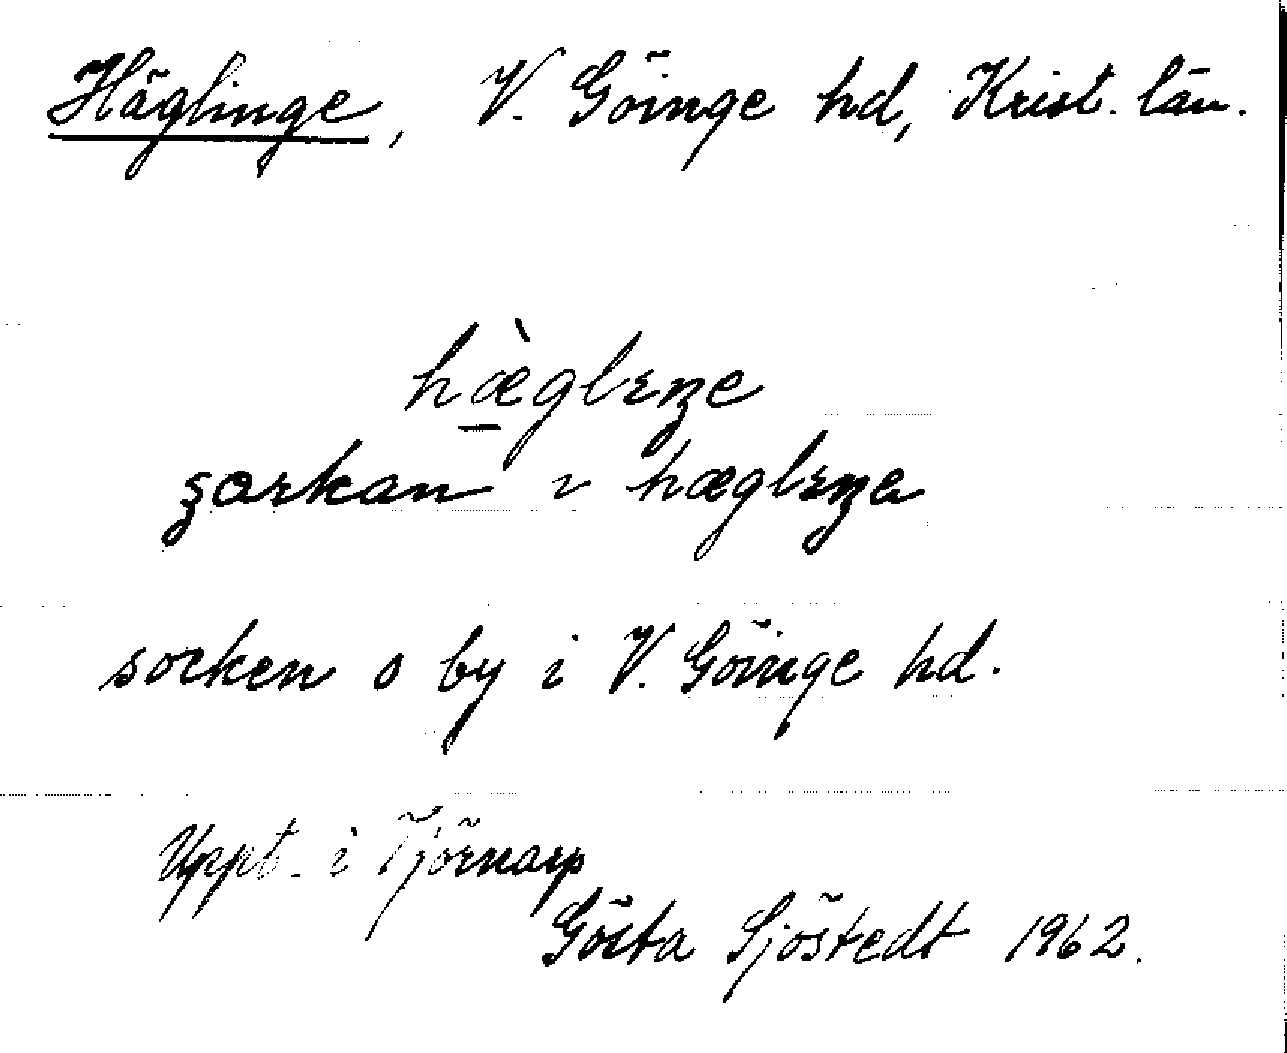 Häglinge, V. Göinge hd, Krist. län.
hæ̀glıŋe
sɑrkan ı hæglıŋe
socken o by i V. Göinge hd.
Uppt. i Tjörnarp
Gösta Sjöstedt 1962.